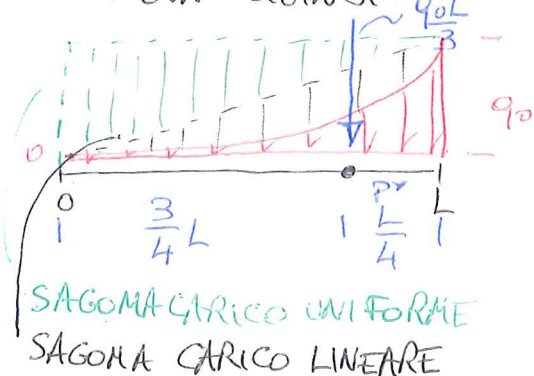 q₀L
3
0
q₀
0
L
1 3/4 L 1 L/4 1
SAGOMA CARICO UNIFORME
SAGOMA CARICO LINEARE